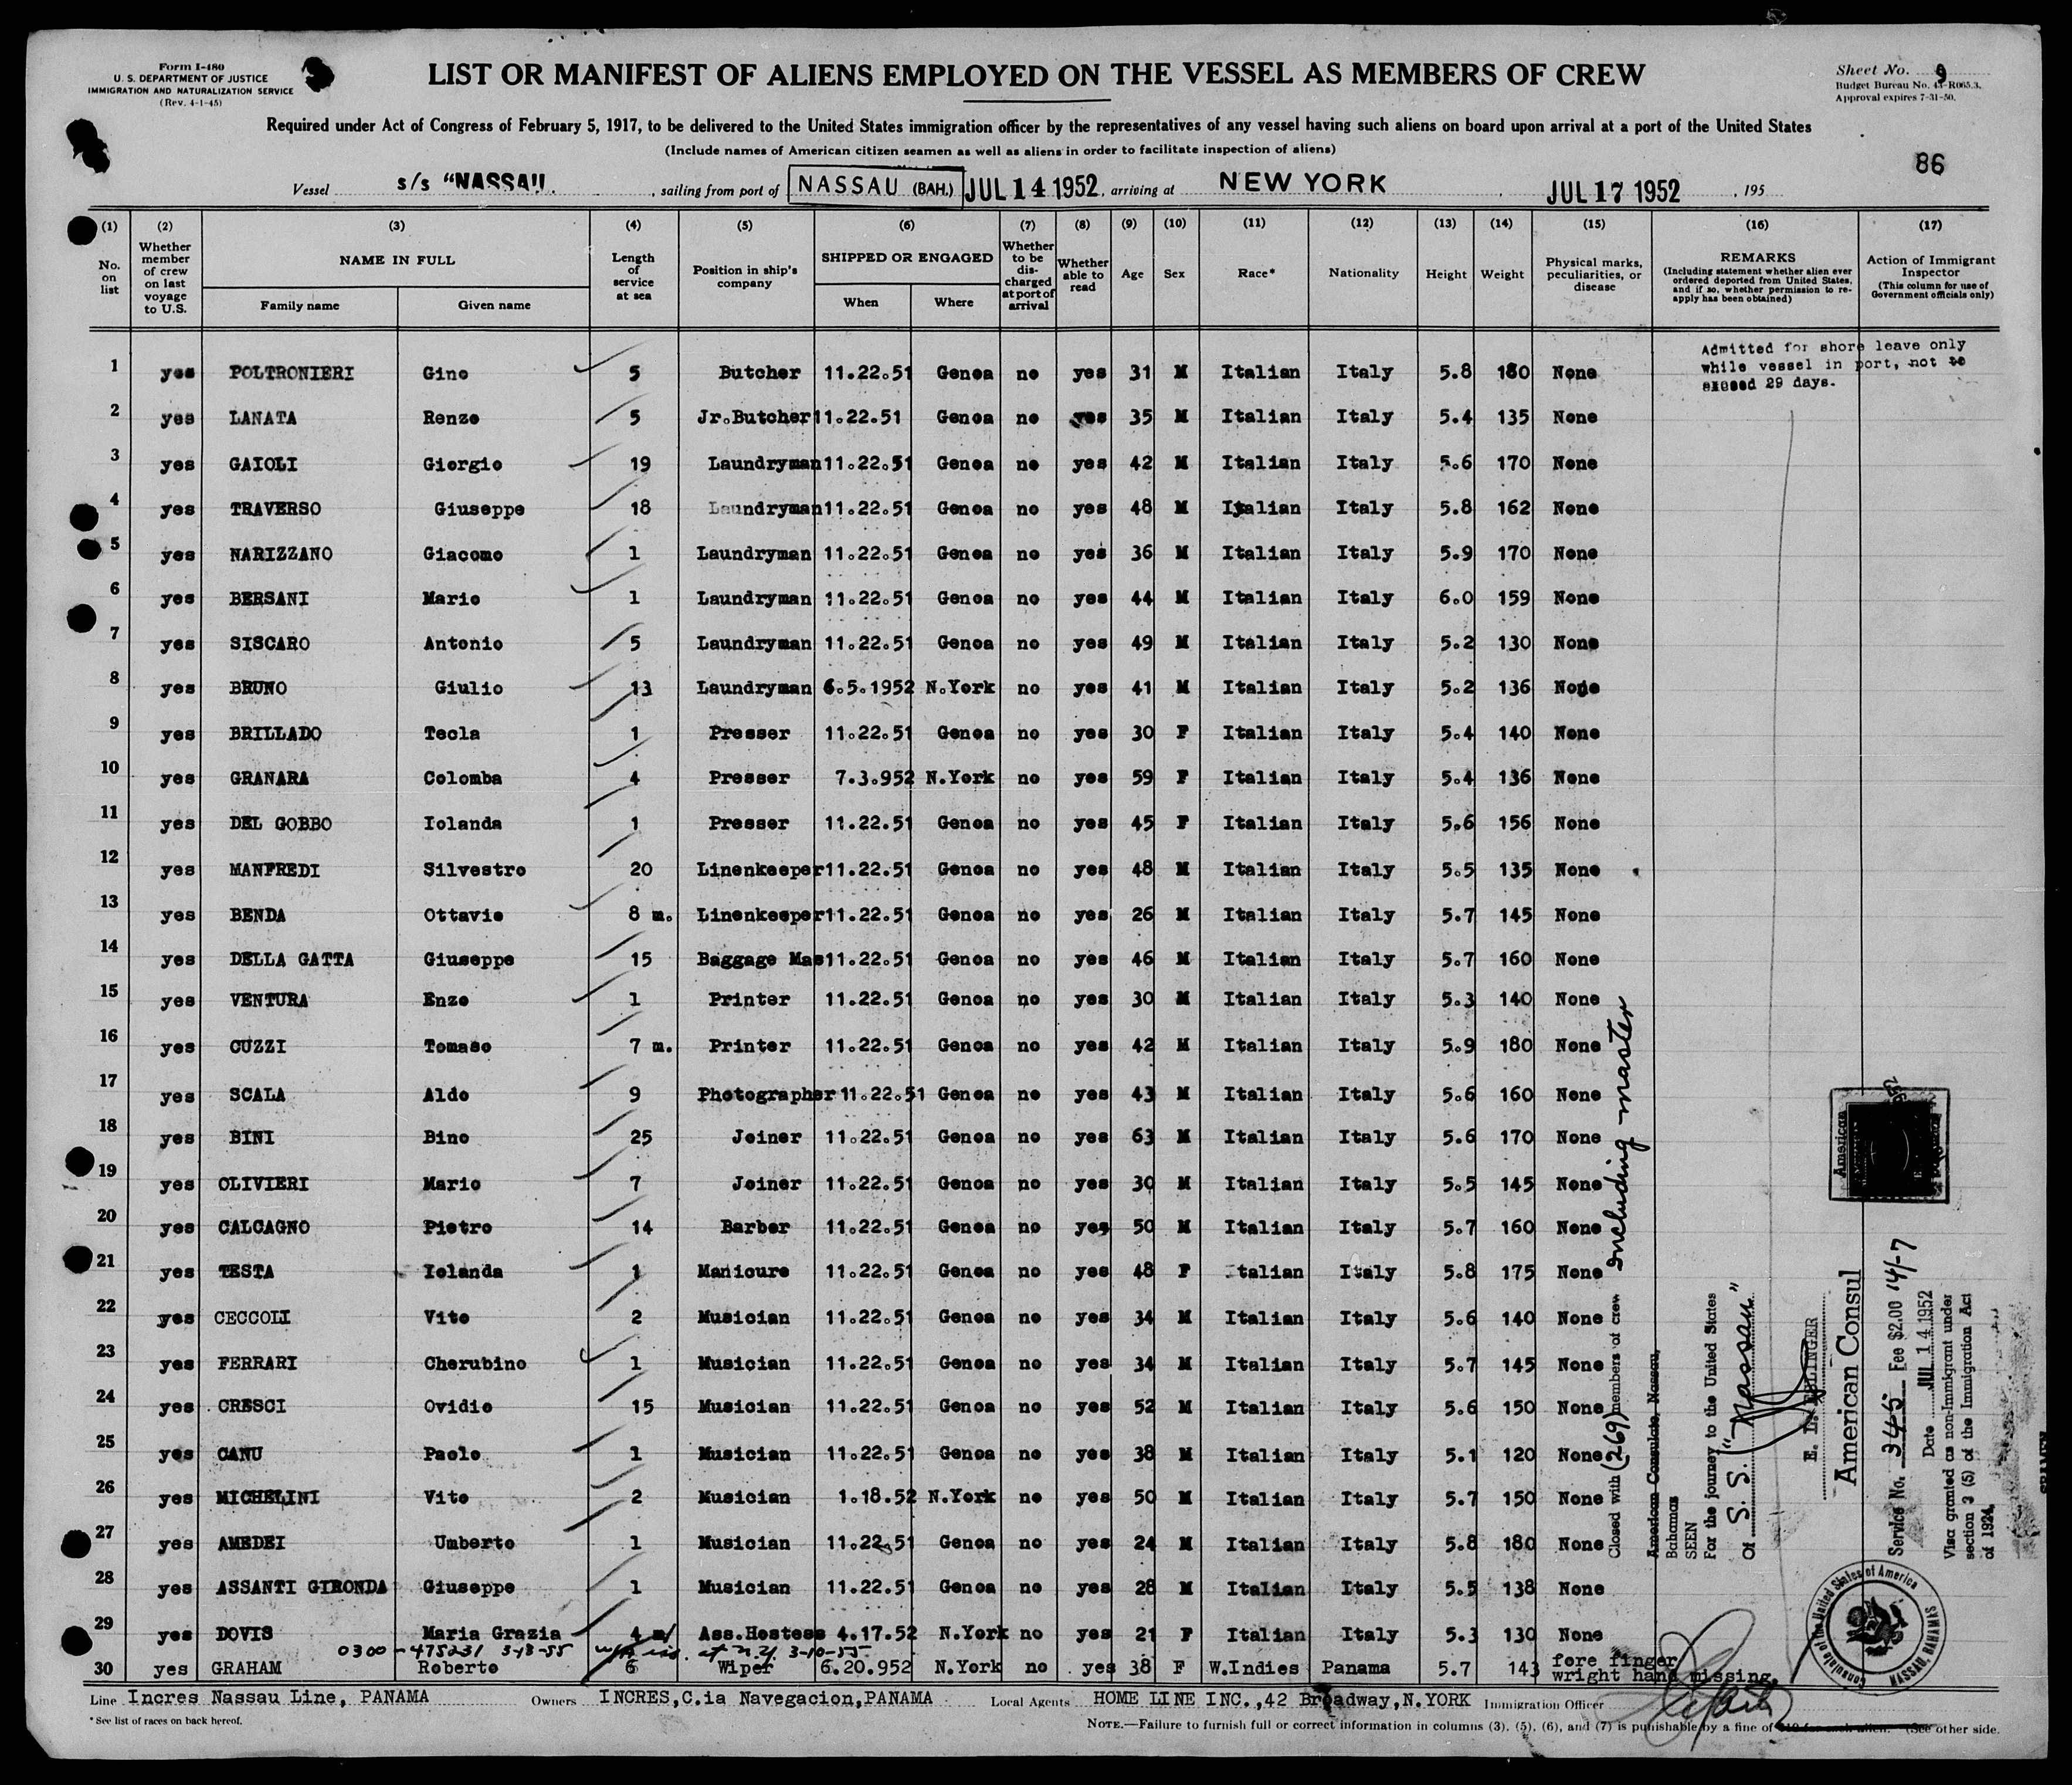 Form I-480
U. S. DEPARTMENT OF JUSTICE
IMMIGRATION AND NATURALIZATION SERVICE
(Rev. 4-1-45)
LIST OR MANIFEST OF ALIENS EMPLOYED ON THE VESSEL AS MEMBERS OF CREW
Sheet No. 9
Budget Bureau No. 43-R065.3.
Approval expires 7-31-50.
Required under Act of Congress of February 5, 1917, to be delivered to the United States immigration officer by the representatives of any vessel having such aliens on board upon arrival at a port of the United States
(Include names of American citizen seamen as well as aliens in order to facilitate inspection of aliens)
86
Vessel s/s "NASSAU. , sailing from port of NASSAU (BAH.) JUL 14 1952, arriving at NEW YORK , JUL 17 1952 , 195
(1) No. on list
(2) Whether member of crew on last voyage to U.S.
(3) NAME IN FULL Family name Given name
(4) Length of service at sea
(5) Position in ship's company
(6) SHIPPED OR ENGAGED When Where
(7) Whether to be discharged at port of arrival
(8) Whether able to read
(9) Age
(10) Sex
(11) Race*
(12) Nationality
(13) Height
(14) Weight
(15) Physical marks, peculiarities, or disease
(16) REMARKS (Including statement whether alien ever ordered deported from United States, and if so, whether permission to reapply has been obtained)
(17) Action of Immigrant Inspector (This column for use of Government officials only)
Admitted for shore leave only
while vessel in port, not to
exceed 29 days.
1 yes POLTRONIERI Gino 5 Butcher 11.22.51 Genoa no yes 31 M Italian Italy 5.8 180 None
2 yes LANATA Renzo 5 Jr.Butcher 11.22.51 Genoa no yes 35 M Italian Italy 5.4 135 None
3 yes GAIOLI Giorgio 19 Laundryman 11.22.51 Genoa no yes 42 M Italian Italy 5.6 170 None
4 yes TRAVERSO Giuseppe 18 Laundryman 11.22.51 Genoa no yes 48 M Italian Italy 5.8 162 None
5 yes NARIZZANO Giacomo 1 Laundryman 11.22.51 Genoa no yes 36 M Italian Italy 5.9 170 None
6 yes BERSANI Mario 1 Laundryman 11.22.51 Genoa no yes 44 M Italian Italy 6.0 159 None
7 yes SISCARO Antonio 5 Laundryman 11.22.51 Genoa no yes 49 M Italian Italy 5.2 130 None
8 yes BRUNO Giulio 13 Laundryman 6.5.1952 N.York no yes 41 M Italian Italy 5.2 136 None
9 yes BRILLADO Tecla 1 Presser 11.22.51 Genoa no yes 30 F Italian Italy 5.4 140 None
10 yes GRANARA Colomba 4 Presser 7.3.952 N.York no yes 59 F Italian Italy 5.4 136 None
11 yes DEL GOBBO Iolanda 1 Presser 11.22.51 Genoa no yes 45 F Italian Italy 5.6 156 None
12 yes MANFREDI Silvestro 20 Linenkeeper 11.22.51 Genoa no yes 48 M Italian Italy 5.5 135 None
13 yes BENDA Ottavio 8 m. Linenkeeper 11.22.51 Genoa no yes 26 M Italian Italy 5.7 145 None
14 yes DELLA GATTA Giuseppe 15 Baggage Mas 11.22.51 Genoa no yes 46 M Italian Italy 5.7 160 None
15 yes VENTURA Enzo 1 Printer 11.22.51 Genoa no yes 30 M Italian Italy 5.3 140 None
16 yes CUZZI Tomaso 7 m. Printer 11.22.51 Genoa no yes 42 M Italian Italy 5.9 180 None
17 yes SCALA Aldo 9 Photographer 11.22.51 Genoa no yes 43 M Italian Italy 5.6 160 None
18 yes BINI Bino 25 Joiner 11.22.51 Genoa no yes 63 M Italian Italy 5.6 170 None
19 yes OLIVIERI Mario 7 Joiner 11.22.51 Genoa no yes 30 M Italian Italy 5.5 145 None
20 yes CALCAGNO Pietro 14 Barber 11.22.51 Genoa no yes 50 M Italian Italy 5.7 160 None
21 yes TESTA Iolanda 1 Manicure 11.22.51 Genoa no yes 48 F Italian Italy 5.8 175 None
22 yes CECCOLI Vito 2 Musician 11.22.51 Genoa no yes 34 M Italian Italy 5.6 140 None
23 yes FERRARI Cherubino 1 Musician 11.22.51 Genoa no yes 34 M Italian Italy 5.7 145 None
24 yes CRESCI Ovidio 15 Musician 11.22.51 Genoa no yes 52 M Italian Italy 5.6 150 None
25 yes CANU Paolo 1 Musician 11.22.51 Genoa no yes 38 M Italian Italy 5.1 120 None
26 yes MICHELINI Vito 2 Musician 1.18.52 N.York no yes 50 M Italian Italy 5.7 150 None
27 yes AMEDEI Umberto 1 Musician 11.22.51 Genoa no yes 24 M Italian Italy 5.8 180 None
28 yes ASSANTI GIRONDA Giuseppe 1 Musician 11.22.51 Genoa no yes 28 M Italian Italy 5.5 138 None
29 yes DOVIS Maria Grazia 4 m/ Ass.Hostess 4.17.52 N.York no yes 21 F Italian Italy 5.3 130 None
0300-475231 3-18-55 at N.Y. 3-10-55
30 yes GRAHAM Roberto 6 Wiper 6.20.952 N.York no yes 38 F W.Indies Panama 5.7 143 fore finger
wright hand missing.
Closed with (269) members of crew Including master
American Consulate, Nassau,
Bahamas
SEEN
For the journey to the United States
Of S. S. "Nassau"
E. L. ERLINGER
American Consul
American
Service No. 345 Fee $2.00 14/-7
Date JUL 14 1952
Visa granted as non-Immigrant under
section 3 (5) of the Immigration Act
of 1924.
Consulate of the United States of America
NASSAU, BAHAMAS
Line Incres Nassau Line, PANAMA Owners INCRES,C.ia Navegacion,PANAMA Local Agents HOME LINE INC.,42 Broadway,N.YORK Immigration Officer
*See list of races on back hereof.
NOTE.—Failure to furnish full or correct information in columns (3), (5), (6), and (7) is punishable by a fine of $10 for each alien. (See other side.